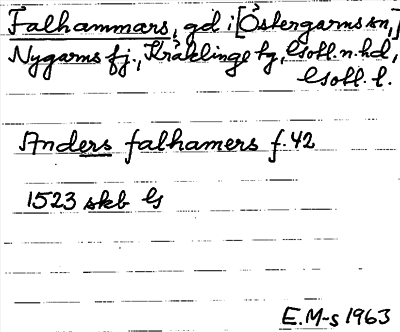 Falhammars, gd i [Östergarns sn,]
Nygarns fj., Kräklinge tg, Gotl. n. hd,
Gotl. l.
Anders falhamers f. 42
1523 skb G
E.M-s 1963